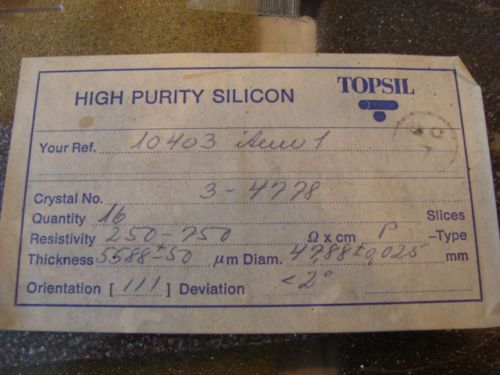 TOPSIL
HIGH PURITY SILICON
Your Ref. 10403 item 1
Crystal No. 3-4778
Quantity 16 Slices
Resistivity 250-750 Ω x cm P -Type
Thickness 5588±50 μm Diam. 47.88±0,025 mm
Orientation [111] Deviation <2°